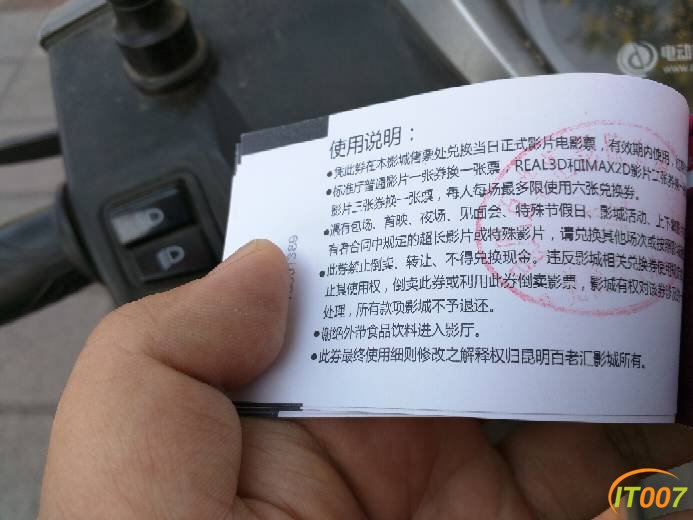 使用说明：
●凭此券在本影城售票处兑换当日正式影片电影票，有效期内使用，
●标准厅普通影片一张券换一张票，REAL3D和IMAX2D影片二张券换一
影片三张券换一张票，每人每场最多限使用六张兑换券。
●满存包场、首映、夜场、见面会、特殊节假日、影城活动、上下
有者合同中规定的超长影片或特殊影片，请兑换其他场次或
●此券禁止倒卖、转让、不得兑换现金。违反影城相关兑换券使用
止其使用权，倒卖此券或利用此券倒卖影票，影城有权对该券
处理，所有款项影城不予退还。
●谢绝外带食品饮料进入影厅。
●此券最终使用细则修改之解释权归昆明百老汇影城所有。
电动
IT007